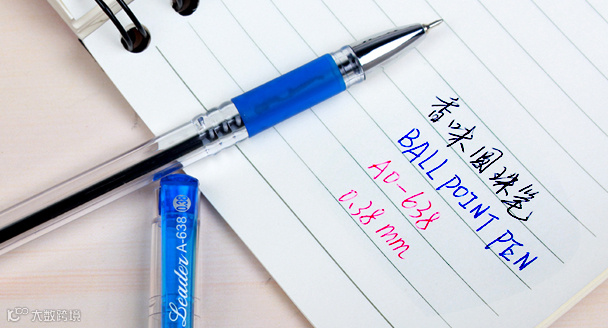 香味圆珠笔
BALL POINT PEN
AO-638
0.38mm
Leader A-638
大数跨境